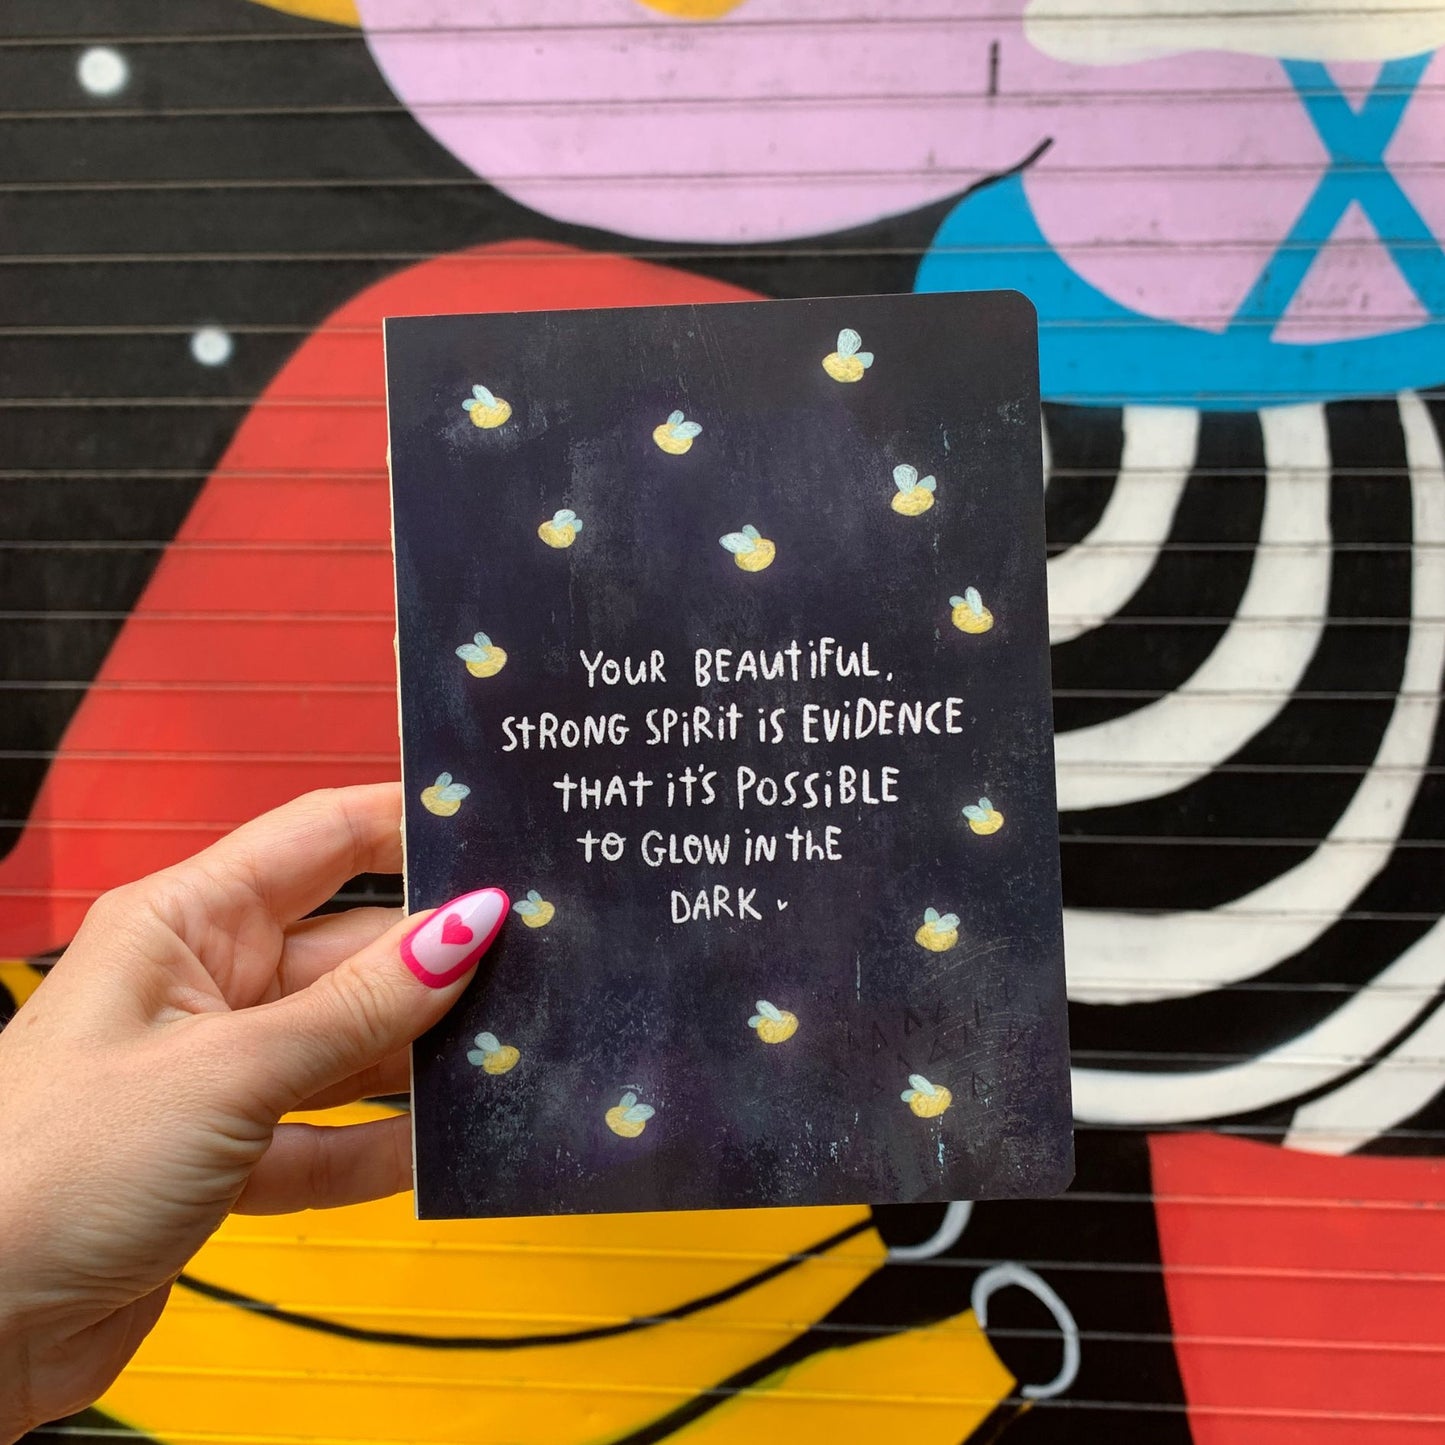 YOUR BEAUTiFUL,
StRONG SPiRit iS EViDENCE
tHAt it's POSSiBLE
tO GLOW iN thE
DARK